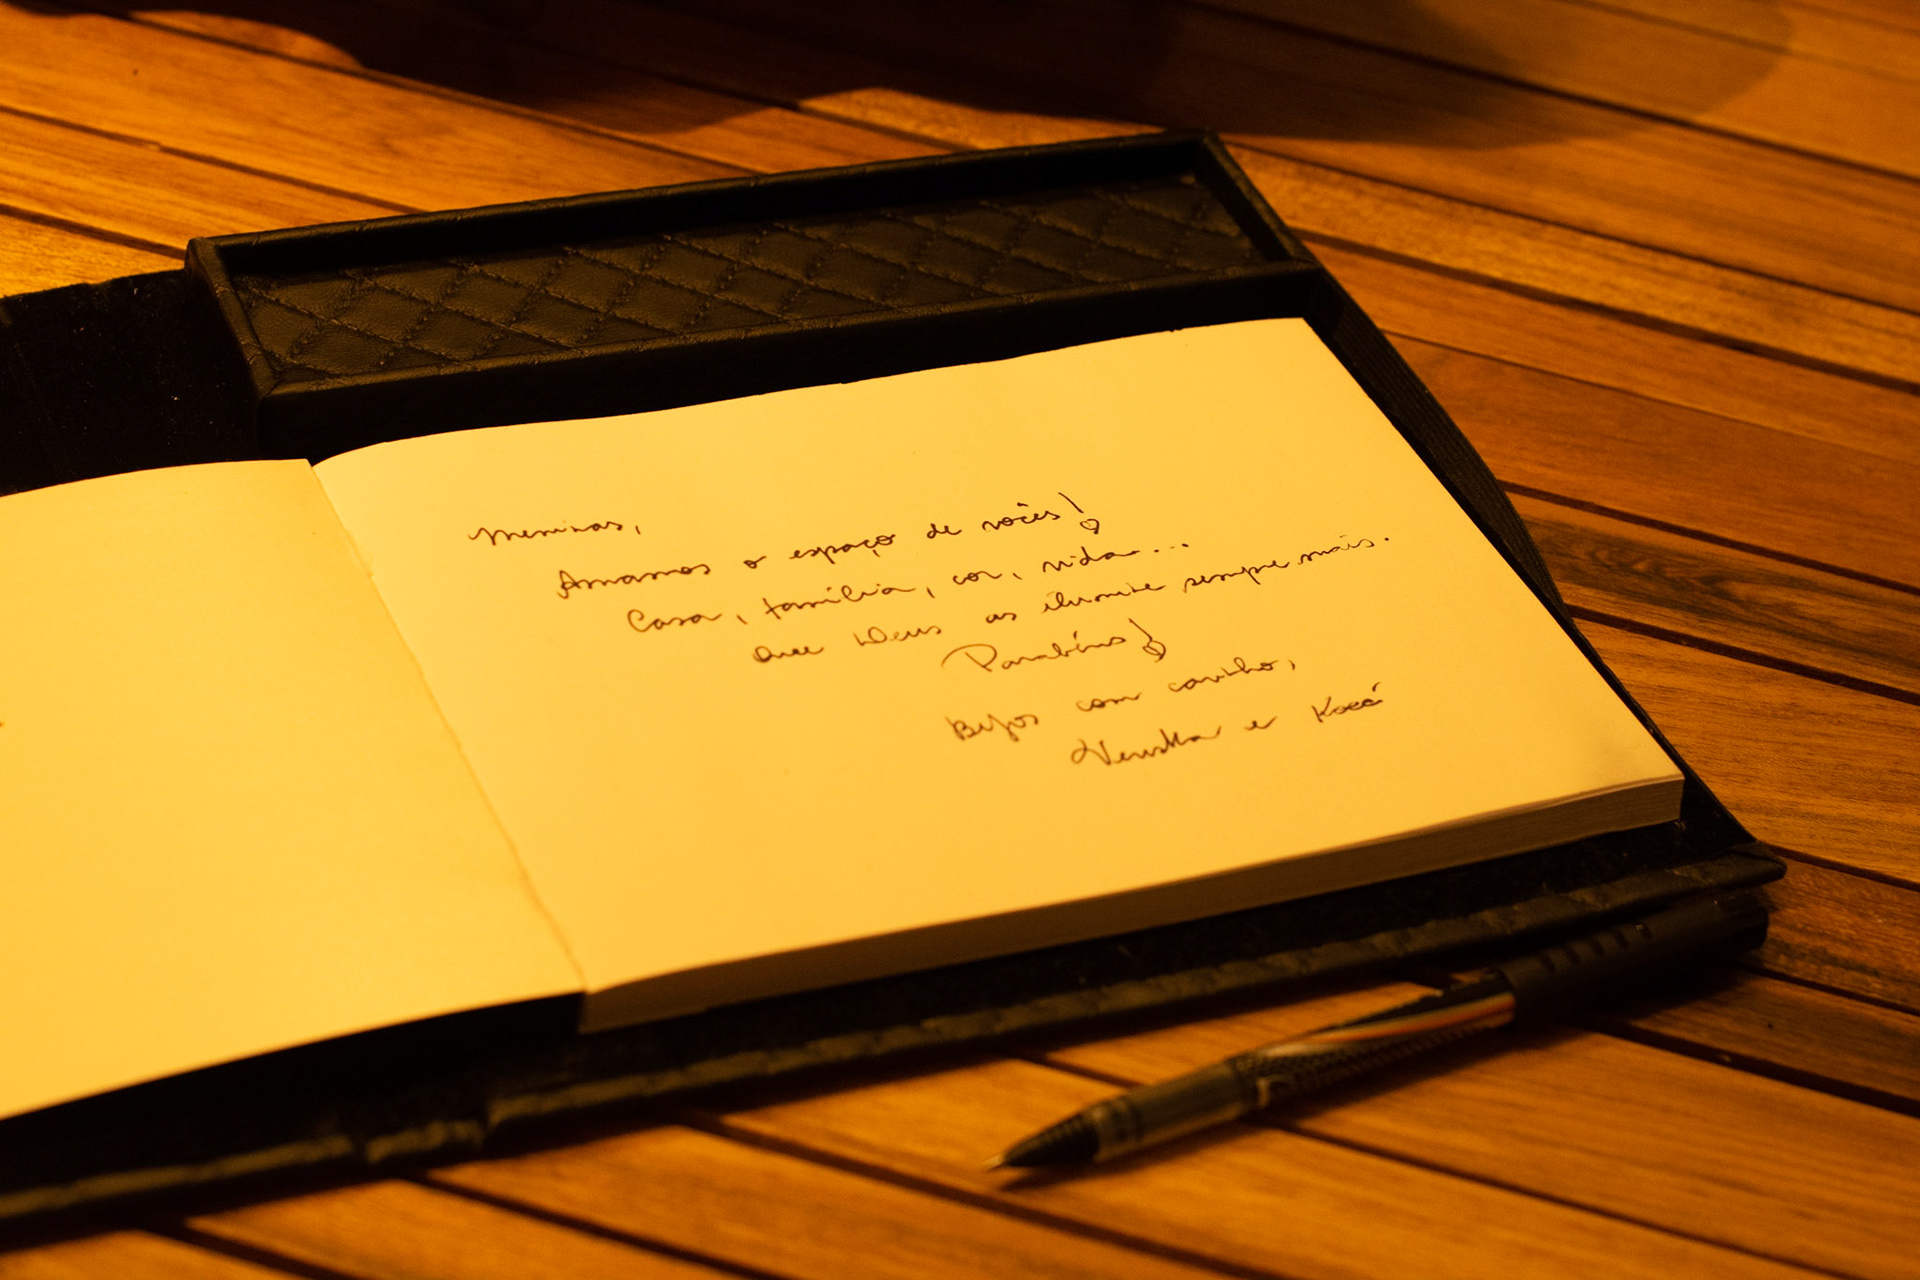 Meninas,
Amamos o espaço de vocês!
Casa, família, cor, vida...
Que Deus as ilumine sempre mais.
Parabéns!
Bejos com carinho,
e